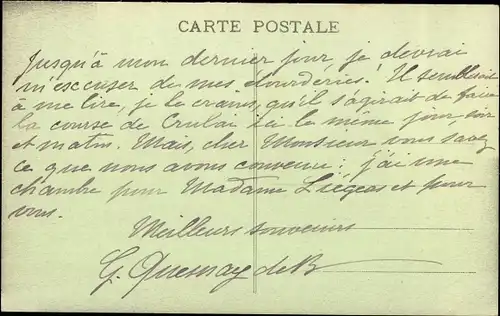 CARTE POSTALE
Jusqu'à mon dernier jour, je devrai
m'excuser de mes lourderies! Il semblerait
à me lire, je le crains, qu'il s'agirait de faire
la course de Crulai ici le même jour, soir
et matin. Mais, cher Monsieur vous savez
ce que nous avons convenu: j'ai une
chambre pour Madame Liégeos et pour
vous.
Meilleurs souvenirs
G. Quesnay de B